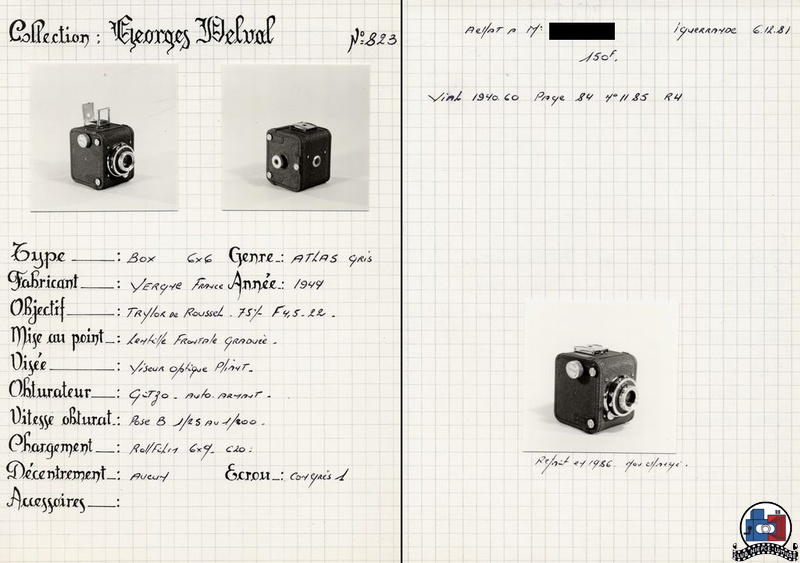 Collection : Georges Delval
N° 823
Type : Box 6x6 Genre : ATLAS gris
Fabricant : VERGNE France Année : 1949
Objectif : Trylor de Roussel . 75% F4,5-22 .
Mise au point : Lentille Frontale Graduée .
Visée : Viseur optique Pliant .
Obturateur : Gitzo - Auto. armant .
Vitesse obturat. : Pose B 1/25 au 1/200 .
Chargement : Rollfilm 6x9 - 620 :
Décentrement : Aucun Ecrou : congrès 1
Accessoires :
Achat a Mr iguerande 6.12.81
150F.
Vial 1940.60 Page 84 n° 1185 R4
Refait en 1986.